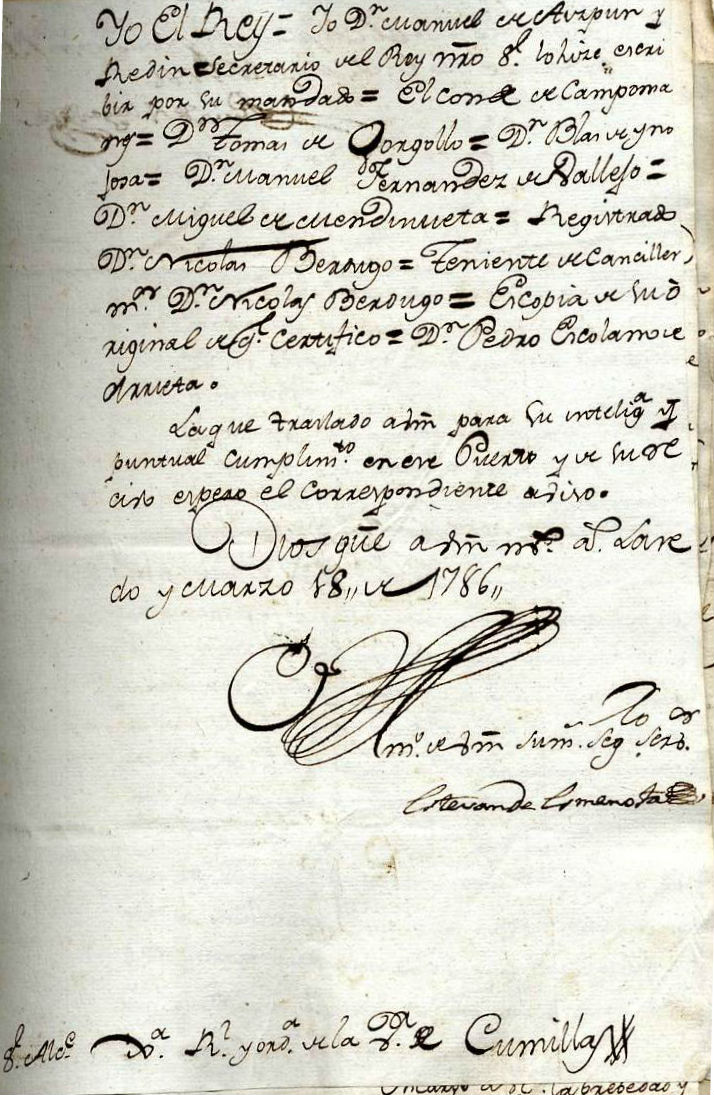 Yo El Rey= Yo Dn Manuel de Aizpun y
Redin=Secretario del Rey nro Sr. lo hize escri
bir por su mandado= El conde de Campoma
nes= Dn Tomas de Gorgollo= Dn Blas de yno
josa= Dn Manuel Fernandez de Vallejo=
Dn Miguel de Mendinueta= Registrado
Dn Nicolas Berdugo= Teniente de Canciller
mor Dn Nicolas Berdugo= Es copia de su o
riginal de q. Certifico= Dn Pedro Escolano de
Arrieta.
La que traslado a Vm para su inteliga y
puntual cumplimto. en ese Puerto y de su re
civo espero el correspondiente aviso.
Dios gue a Vm ms. as. Lare
do y Marzo 18,, de 1786,,
mo. de Vm su ms. seg. serv.
Estevan de
Sr. Alce. Ra. Rl. y orda. de la Va. de Cumillas